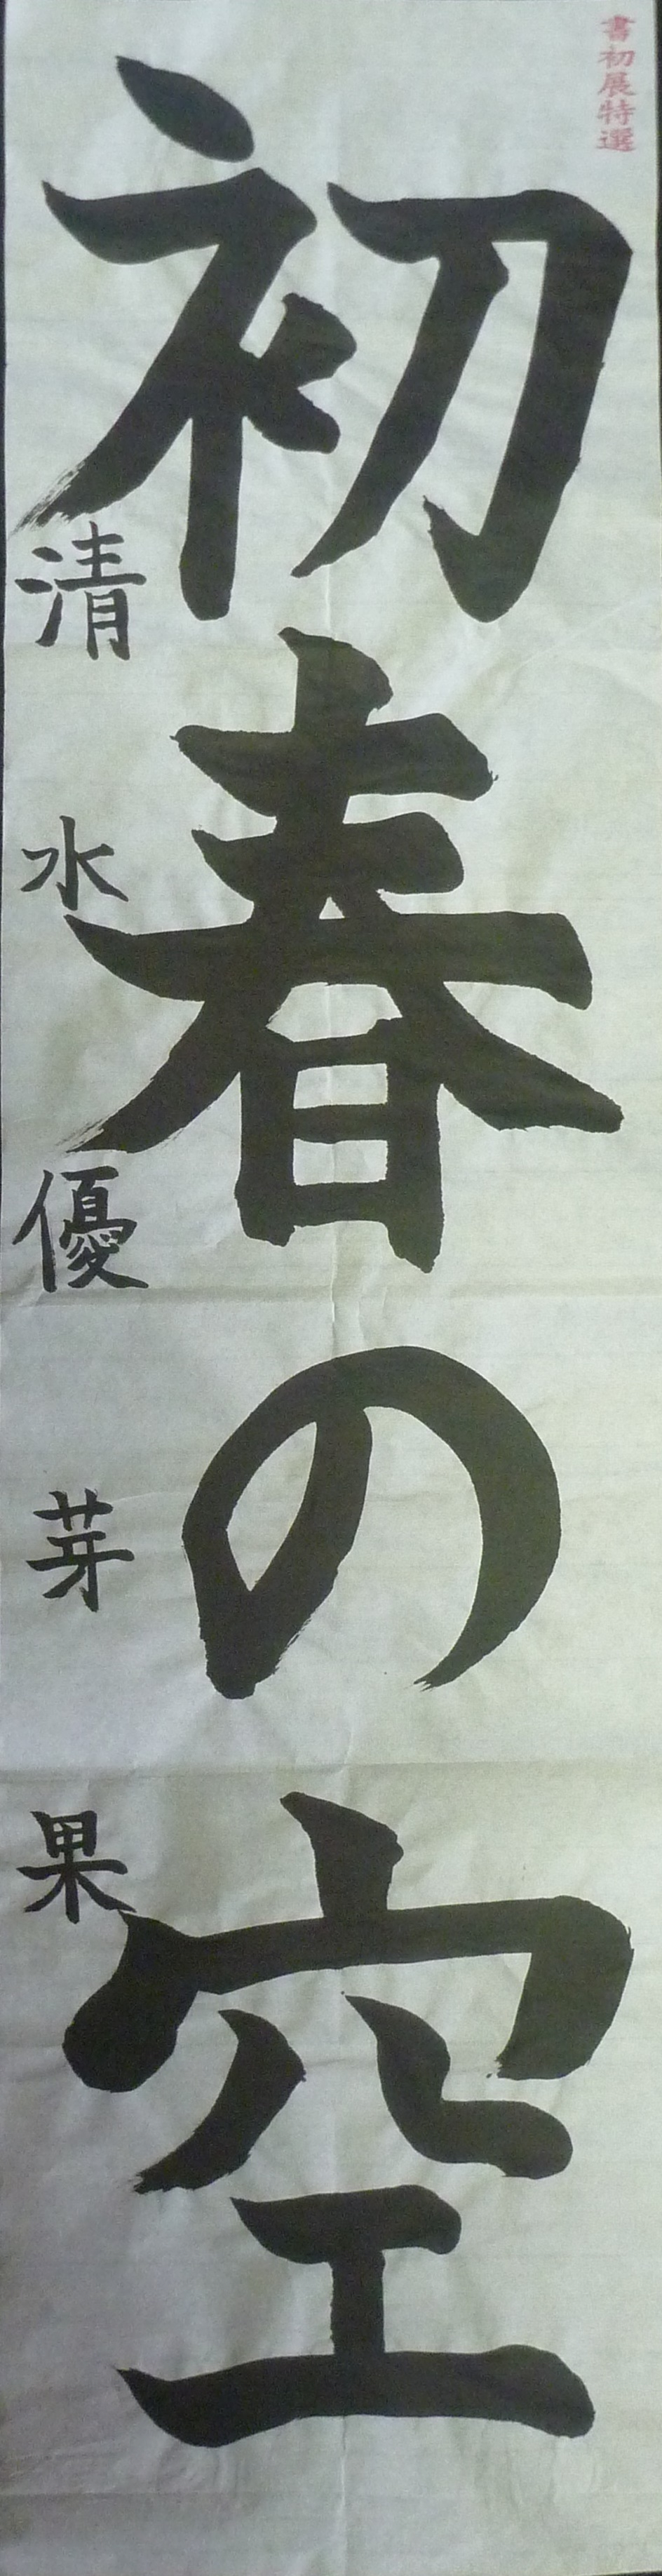 書初展特選
初春の空
清水優芽果